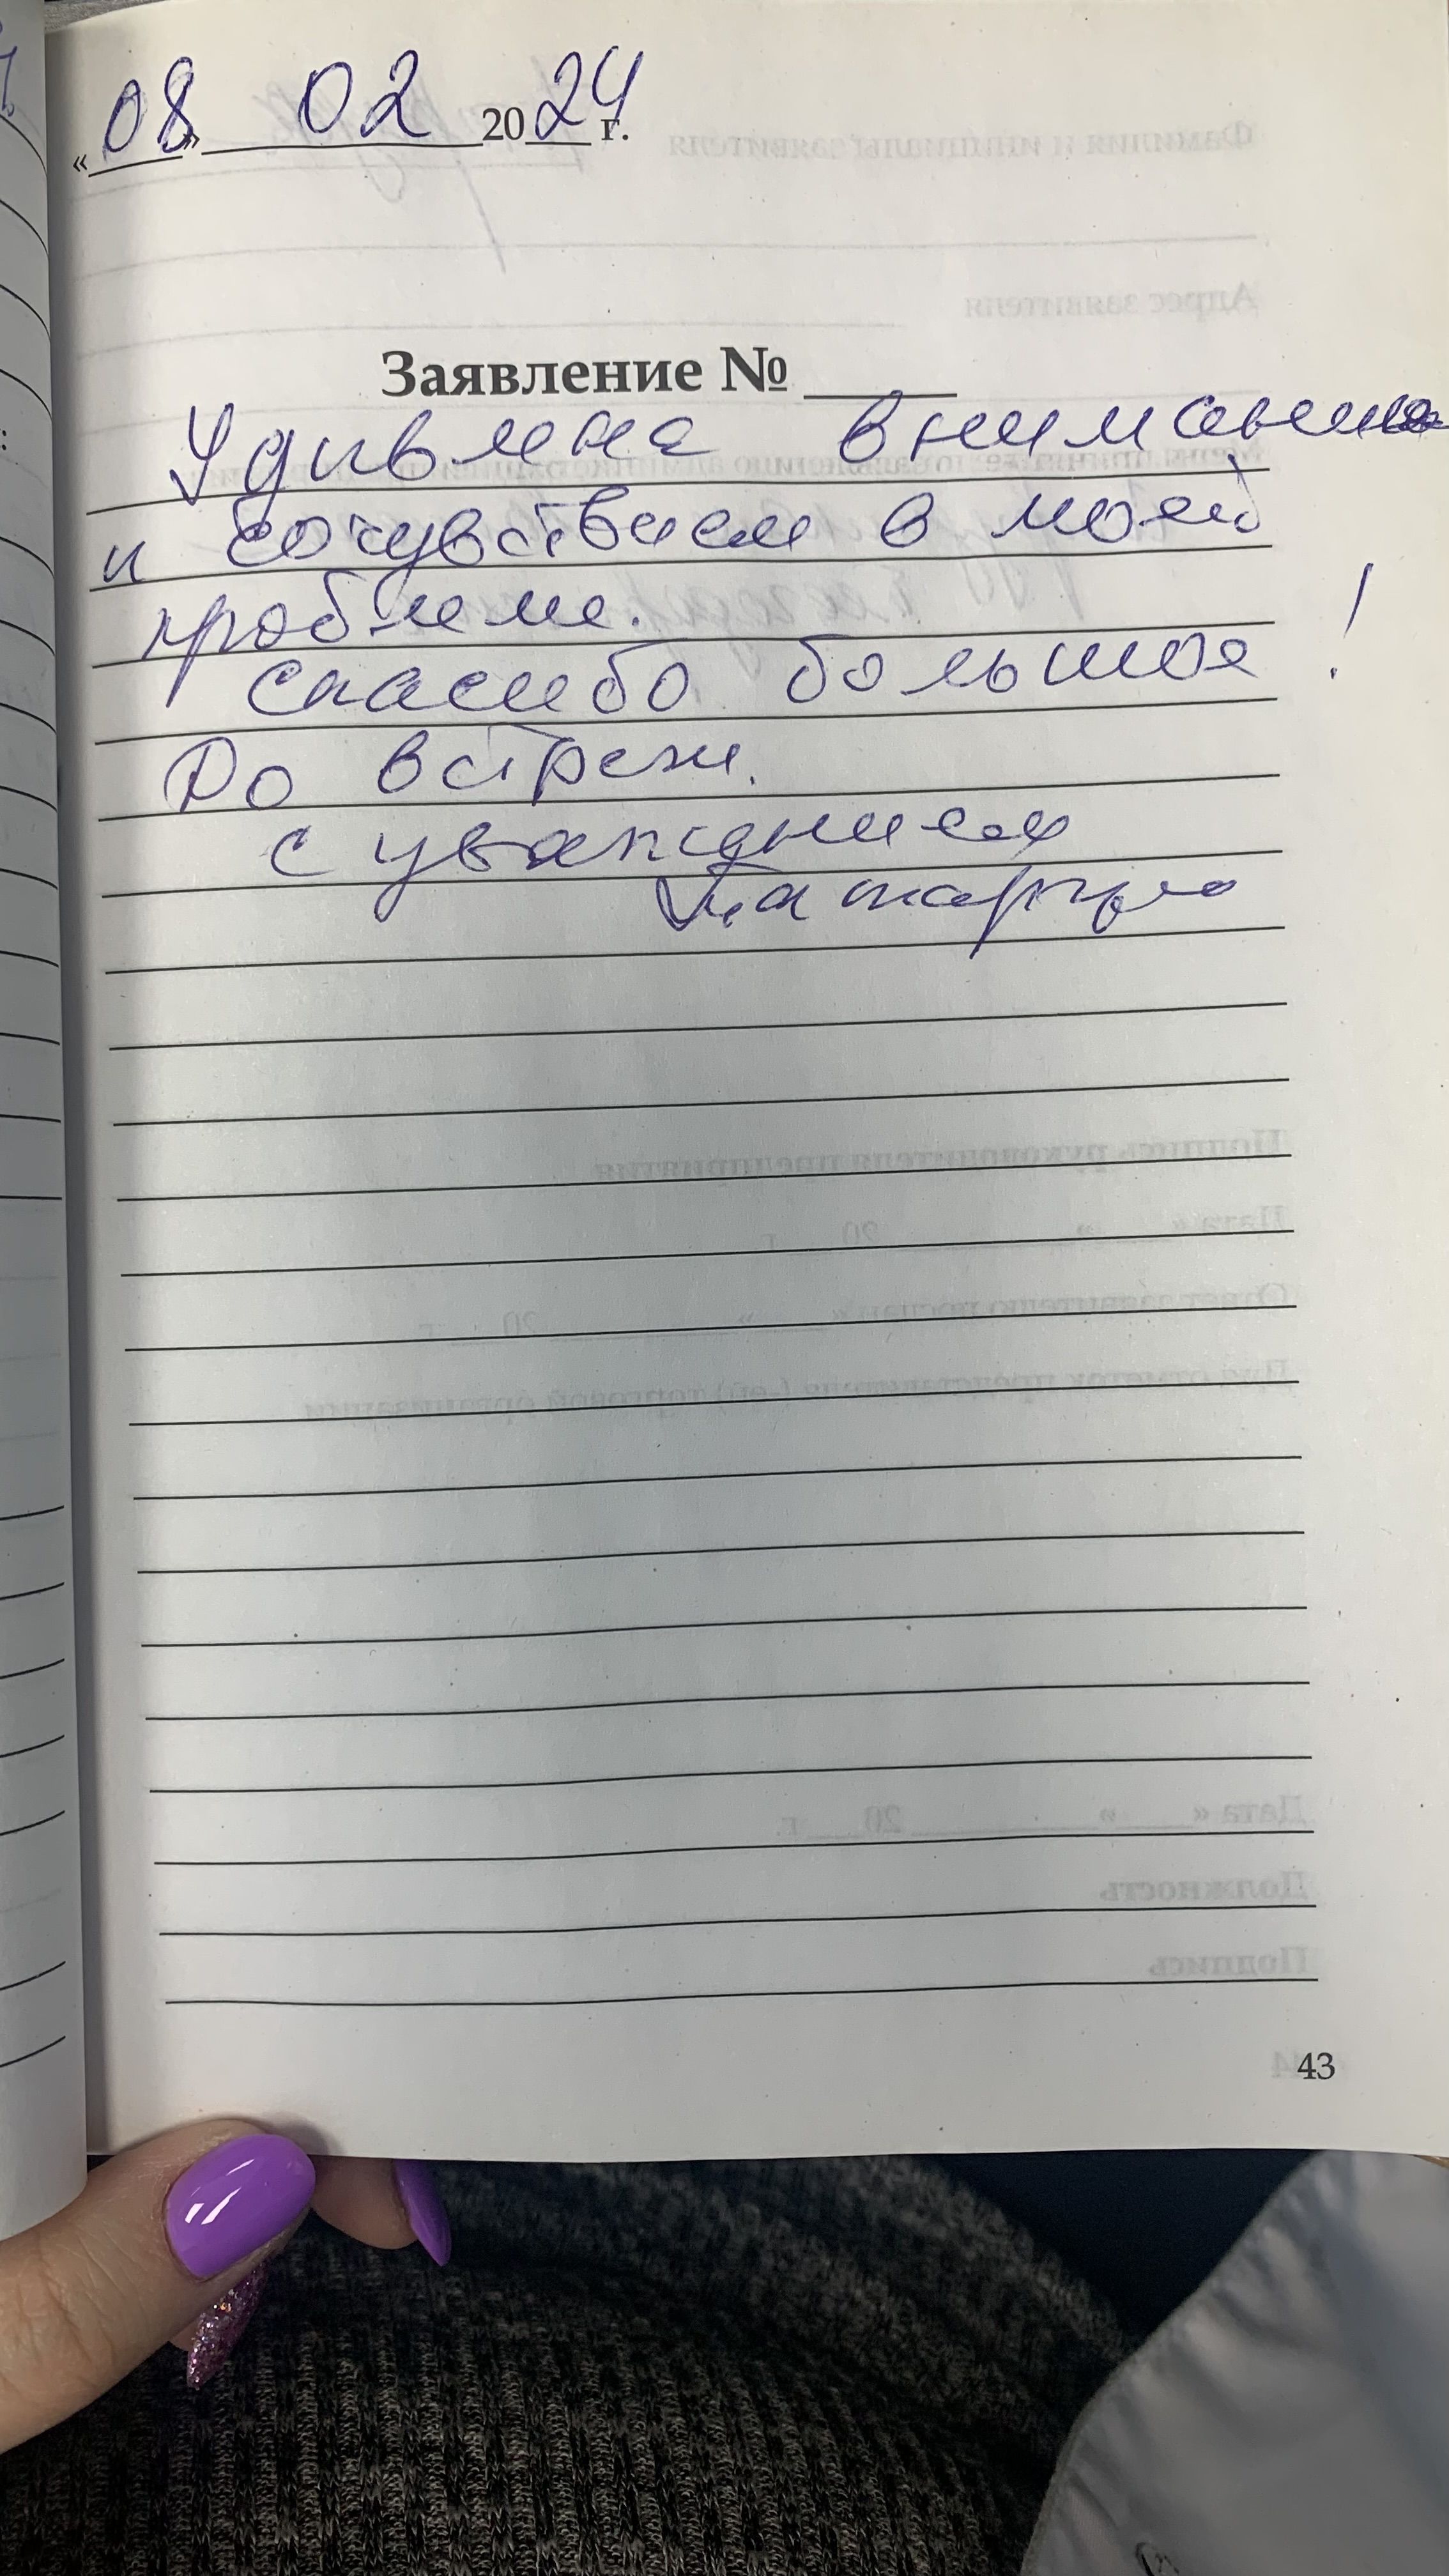 «08» 02 2024 г.
Заявление №
Удивлена вниманием
и сочувствием в моей
проблеме.
Спасибо большое!
До встречи.
С уважением
43